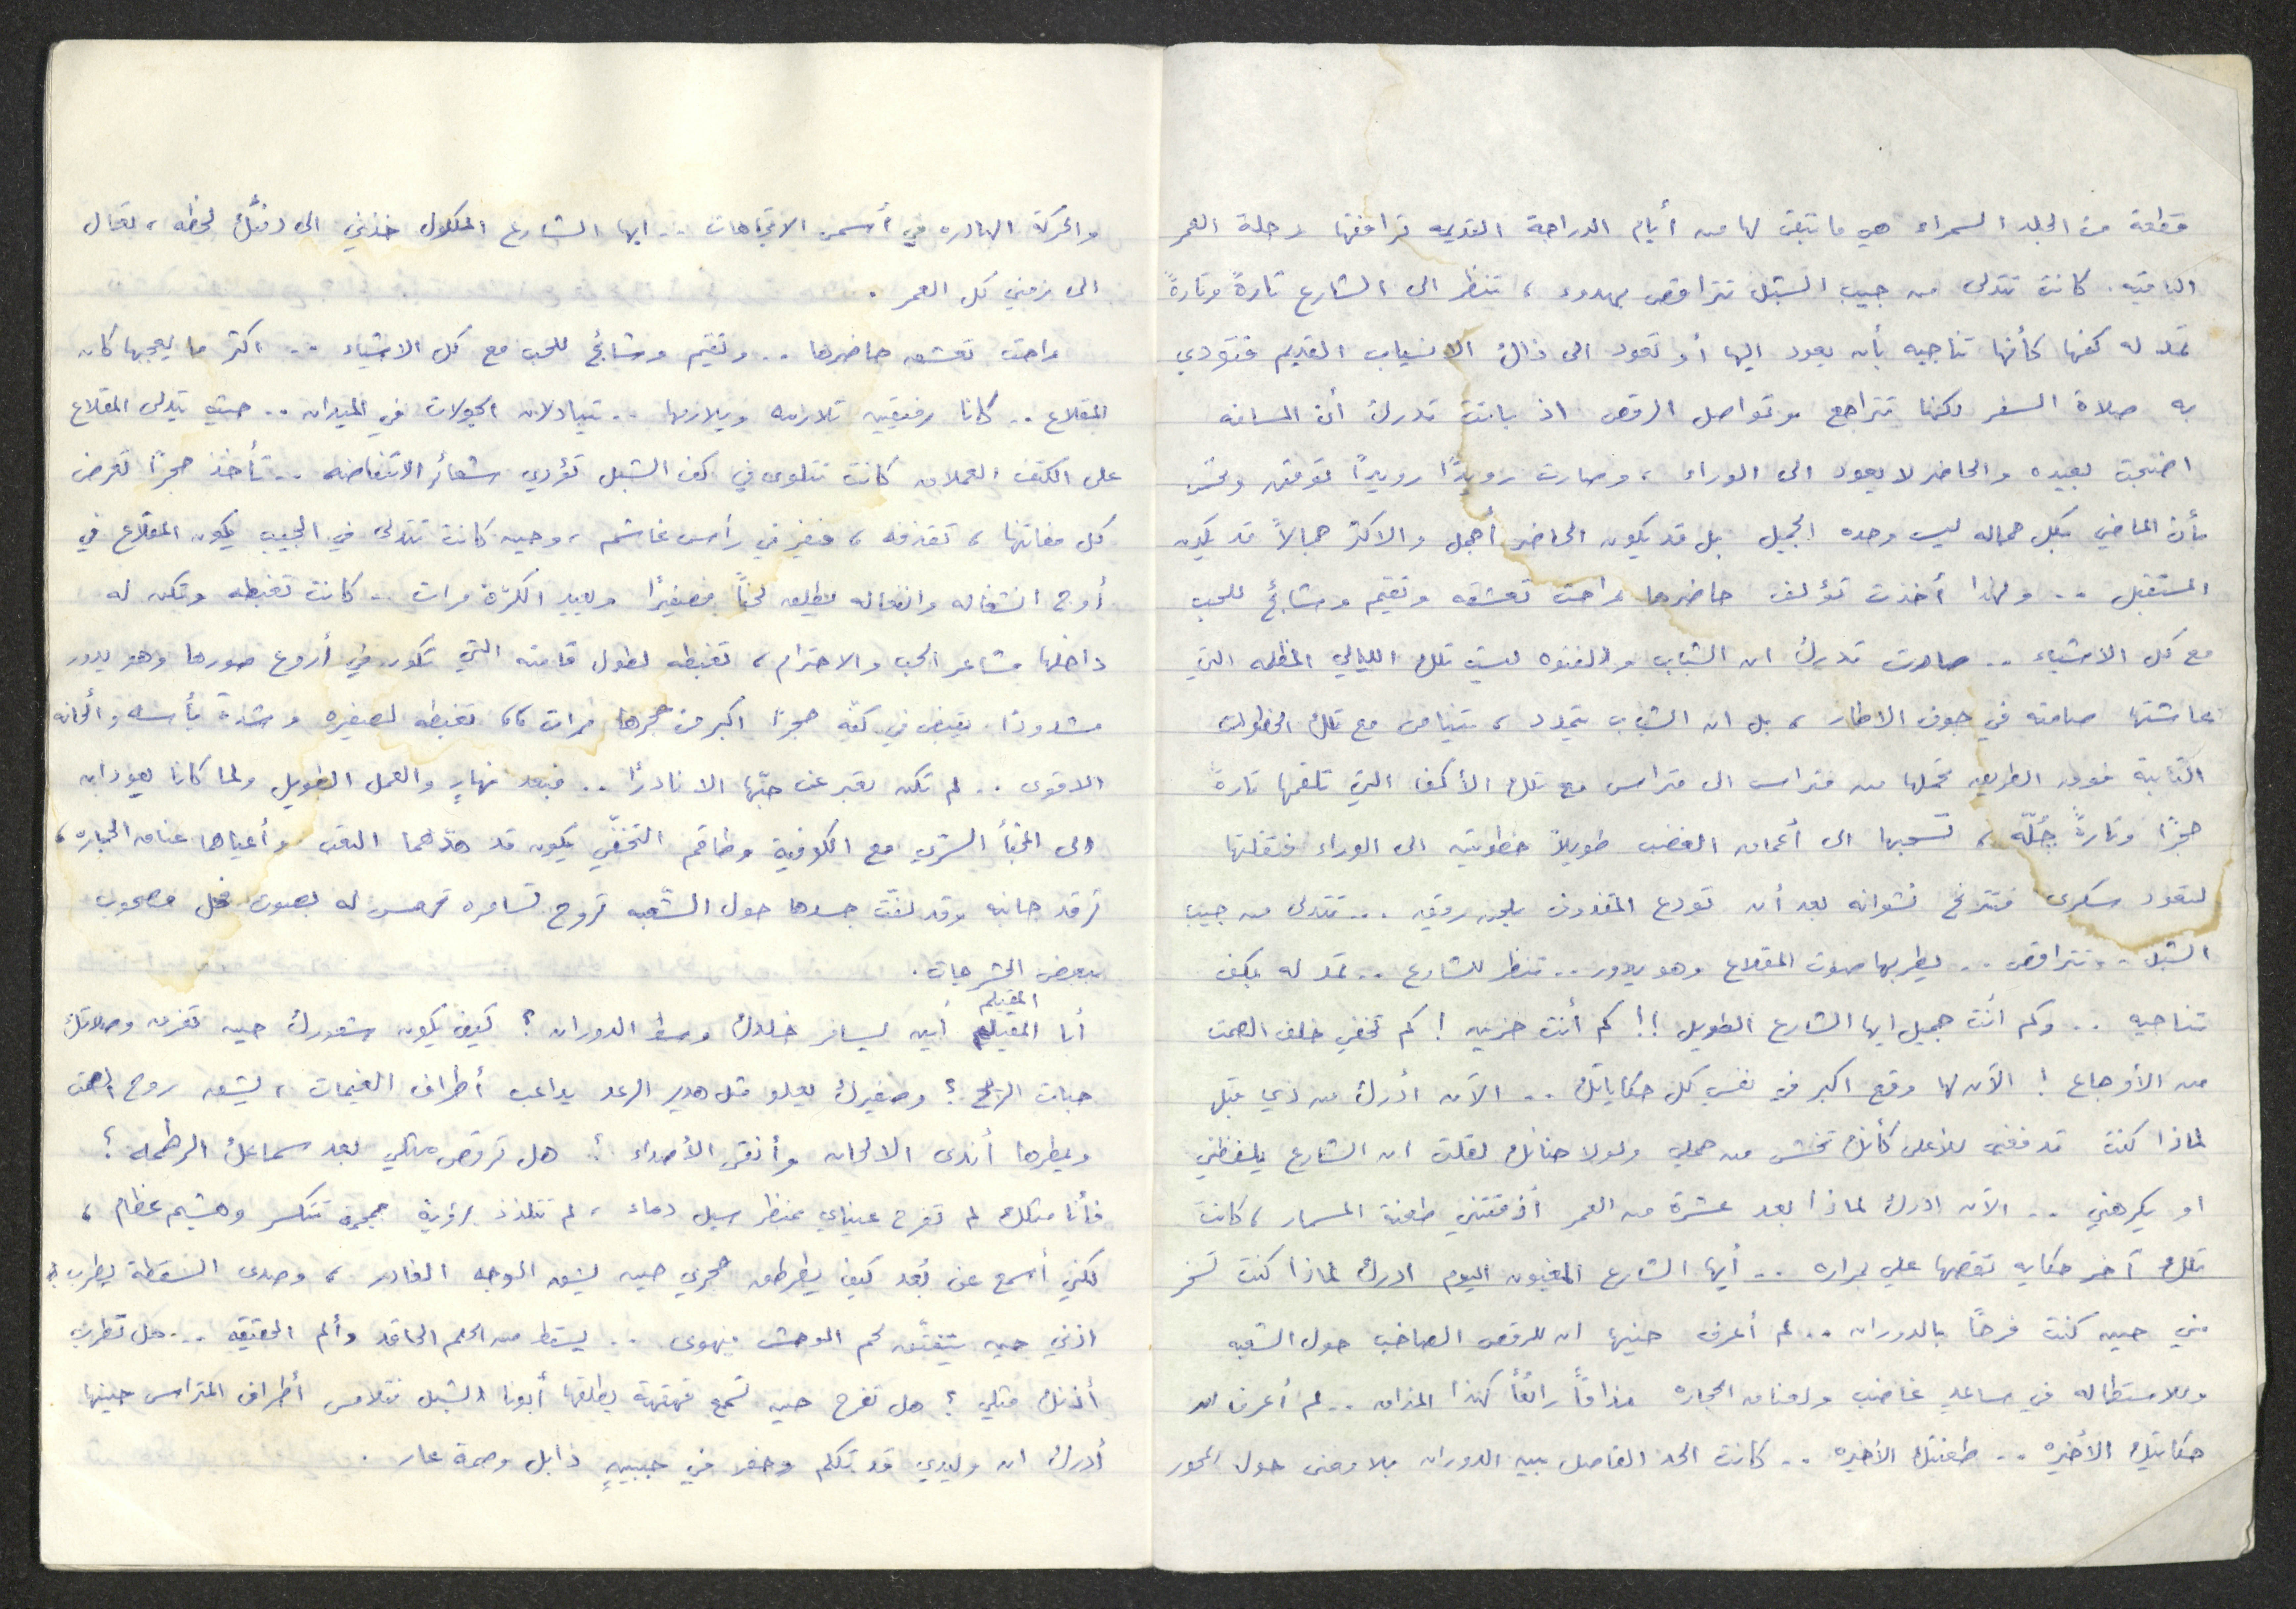 قطعة من الجلد السمراء هي ما تبقى لها من أيام الدراجة القديمه ترافقها رحلة العمر
الباقيه. كانت تتدلى من جيب الشبل تتراقص بهدوء ، تنظر الى الشارع تارةً وتارةً
تمد له كفها كأنها تناجيه بأن يعود اليها أو تعود الى ذاك الانسياب القديم فتؤدي
به صلاة السفر لكنها تتراجع وتواصل الرقص اذ باتت تدرك أن المسافه
اضحت بعيده والحاضر لا يعود الى الوراء ، وصارت رويدًا رويدًا توقن وتحس
بأن الماضي بكل جماله ليس وحده الجميل بل قد يكون الحاضر أجمل والاكثر جمالاً قد يكون
المستقبل .. ولهذا أخذت تؤلف حاضرها راحت تعشقه وتقيم وشائج للحب
مع كل الاشياء .. صارت تدرك ان الشباب والفتوه ليست تلك الليالي المظلمه التي
عاشتها صامته في جوف الاطار ، بل ان الشباب يتجدد ، يتنامى مع تلك الخطوات
الثابتة فوق الطريق تحملها من متراس الى متراس مع تلك الأكف التي تلقمها تارةً
حجرًا وتارةً جُلّه ، تسحبها الى أعماق الغضب طويلاً خطوتين الى الوراء فتفلتها
لتعود سكرى فتترنح نشوانه بعد أن تودع المقذوف بلحن رقيق ... تتدلى من جيب
الشبل .. تتراقص .. يطربها صوت المقلاع وهو يدور .. تنظر للشارع .. تمد له بكف
تناجيه .. وكم أنت جميل ايها الشارع الطويل !! كم أنت حزين ! كم تخفي خلف الصمت
من الأوجاع ! الآن لها وقع اكبر في نفسي كل حكاياتك .. الآن أدرك من ذي قبل
لماذا كنت تدفعني للأعلى كأنك تخشى من حملي ولولا حنانك لقلت ان الشارع يلفظني
او يكرهني .. الآن ادرك لماذا بعد عشرة من العمر أذقتني طعنة المسمار ، كانت
تلك آخر حكايه تقصها علي بمراره .. أيها الشارع المغبون اليوم ادرك لماذا كنت تسخر
مني حين كنت فرحًا بالدوران .. لم أعرف حينها ان للرقص الصاخب حول الشعبه
وللاستطاله في ساعدٍ غاضب ولعناق الحجاره مذاقًا رائعًا كهذا المذاق .. لم أعرف ان
حكايتك الأخيره .. طعنتك الأخيره .. كانت الحد الفاصل بين الدوران بلا معنى حول المحور
والحركة الهادره في أسمى الاتجاهات .. ايها الشارع المكلول خذني الى دفئك لحظه ، تعال
الى زمني كل العمر .
راحت تعشق حاضرها .. وتقيم وشائج للحب مع كل الاشياء .. اكثر ما يعجبها كان
المقلاع .. كانا رفيقين تلازمه ويلازمها .. يتبادلان الجولات في الميدان .. حين يتدلى المقلاع
على الكتف العملاق كانت تتلوى في كف الشبل تؤدي شعائر الانتفاضه .. تأخذ حجرًا تعرض
كل مفاتنها ، تقذفه ، في رأس غاشم ، وحين كانت تتدلى في الجيب يكون المقلاع في
أوج انشغاله وانفعاله يطلق لحنًا صفيرًا ويعيد الكرّة مرات .. كانت تغبطه وتكن له
داخلها مشاعر الحب والاحترام ، تغبطه لطول قامته التي تكون في أروع صورها وهو يدور
مشدودًا. يقبض في كفّه حجرًا اكبر من حجرها مرات ،، تغبطه لصفيره وشدة بأسه وألحانه
الاقوى .. لم تكن تعبر عن حبّها الا نادرًا .. فبعد نهارٍ والعمل الطويل ولما كانا يعودان
الى المخبأ السّري مع الكوفية وطاقم التخفّي يكون قد هدّهما التعب وأعياها عناق الحجاره ،
ترقد جانبه وقد لفّت جسدها حول الشّعبه تروح تسامره تهمس له بصوت خجل مصحوب
ببعض الحشرجات .
المقيلع
أنا أين يسافر خلدك وسط الدوران ؟ كيف يكون شعورك حين تعزف وصلاتك
حبات الريح ؟ وصفيرك يعلو مثل هدير الرعد يداعب أطراف الغيمات ، يشق روح الصمت
ويمطرها أندى الالحان وأنقى الأصداء ؟ هل ترقص مثلي بعد سماعك الرطمه ؟
فأنا مثلك لم تفرح عيناي بمنظر سيل دماء ، لم تتلذذ برؤية جمجمة تتكسر وهشيم عظام ،
لكني أسمع عن بُعد كيف يطرطق حجري حين يشق الوجه الغادر ، وصدى السقطة يطرب
اذني حين يتفتّق لحم الوحش فيهوى .. يسقط من الحلم الحاقد وألم الحقيقه ... هل تطرب
أذنك مثلي ؟ هل تفرح حين تسمع قهقهة يطلقها أبونا الشبل فتلامس أطراف المتراس حينها
أدرك ان وليدي قد تكلم وحفر في جبينٍ ذابل وصمة عار .